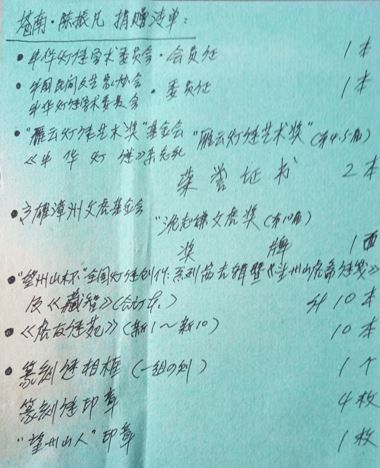 塔南·陈振凡 捐赠清单：
• 中华灯谜学术委员会·会员证 1本
• 中国民间文艺家协会
中华灯谜学术委员会·委员证 1本
• “雁云灯谜艺术奖”基金会 “雁云灯谜艺术奖”(第4.5届)
《中华灯谜》
荣誉证书 2本
• 文虎基金会 “沈志谦文虎奖(第10届)
奖牌 1面
全国灯谜创作
及《藏智》(合订本) 计10本
• 《虎友谜苑》(新1～新10) 10本
• 篆刻谜相框(一组の刻) 1个
篆刻谜印章 4枚
“望州山人”印章 1枚